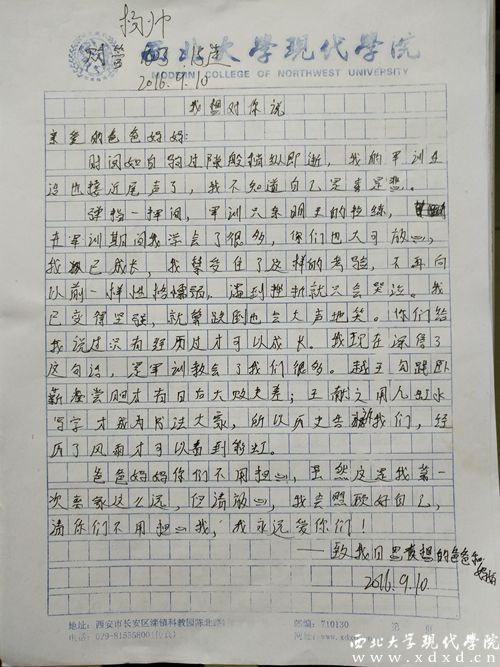 杨帅
西北大学现代学院
MODERN COLLEGE OF NORTHWEST UNIVERSITY
2016.9.10
我想对你说
亲爱的爸爸妈妈:
时间如白驹过隙般稍纵即逝,我的军训生
活也接近尾声了,我不知道自己是喜是悲。
弹指一挥间,军训只余明天的拉练,
在军训期间我学会了很多,你们也大可放心,
我已成长,我禁受住了这样的考验,不再向
以前一样性格懦弱,遇到挫折就只会哭泣。我
已变得坚强,就算跌倒也会大声地笑。你们给
我说过只有经历过才可以成长。我现在深得了
这句话,是军训教会了我们很多。越王勾践卧
薪尝胆才有日后大败夫差;王献之用八缸水
写字才成为书法大家,所以历史告诉我们,经
历了风雨才可以看到彩虹。
爸爸妈妈你们不用担心,虽然这是我第一
次离家这么远,但请放心,我会照顾好自己,
请你们不用担心我,我永远爱你们!
——致我日思夜想的爸爸和妈妈
2016.9.10
地址:西安市长安区滦镇科教园陈北路 邮编:710130 第 页
电话:029-81555800(传真) 网址:www.xdxd.cn
西北大学现代学院
www.xdxd.cn